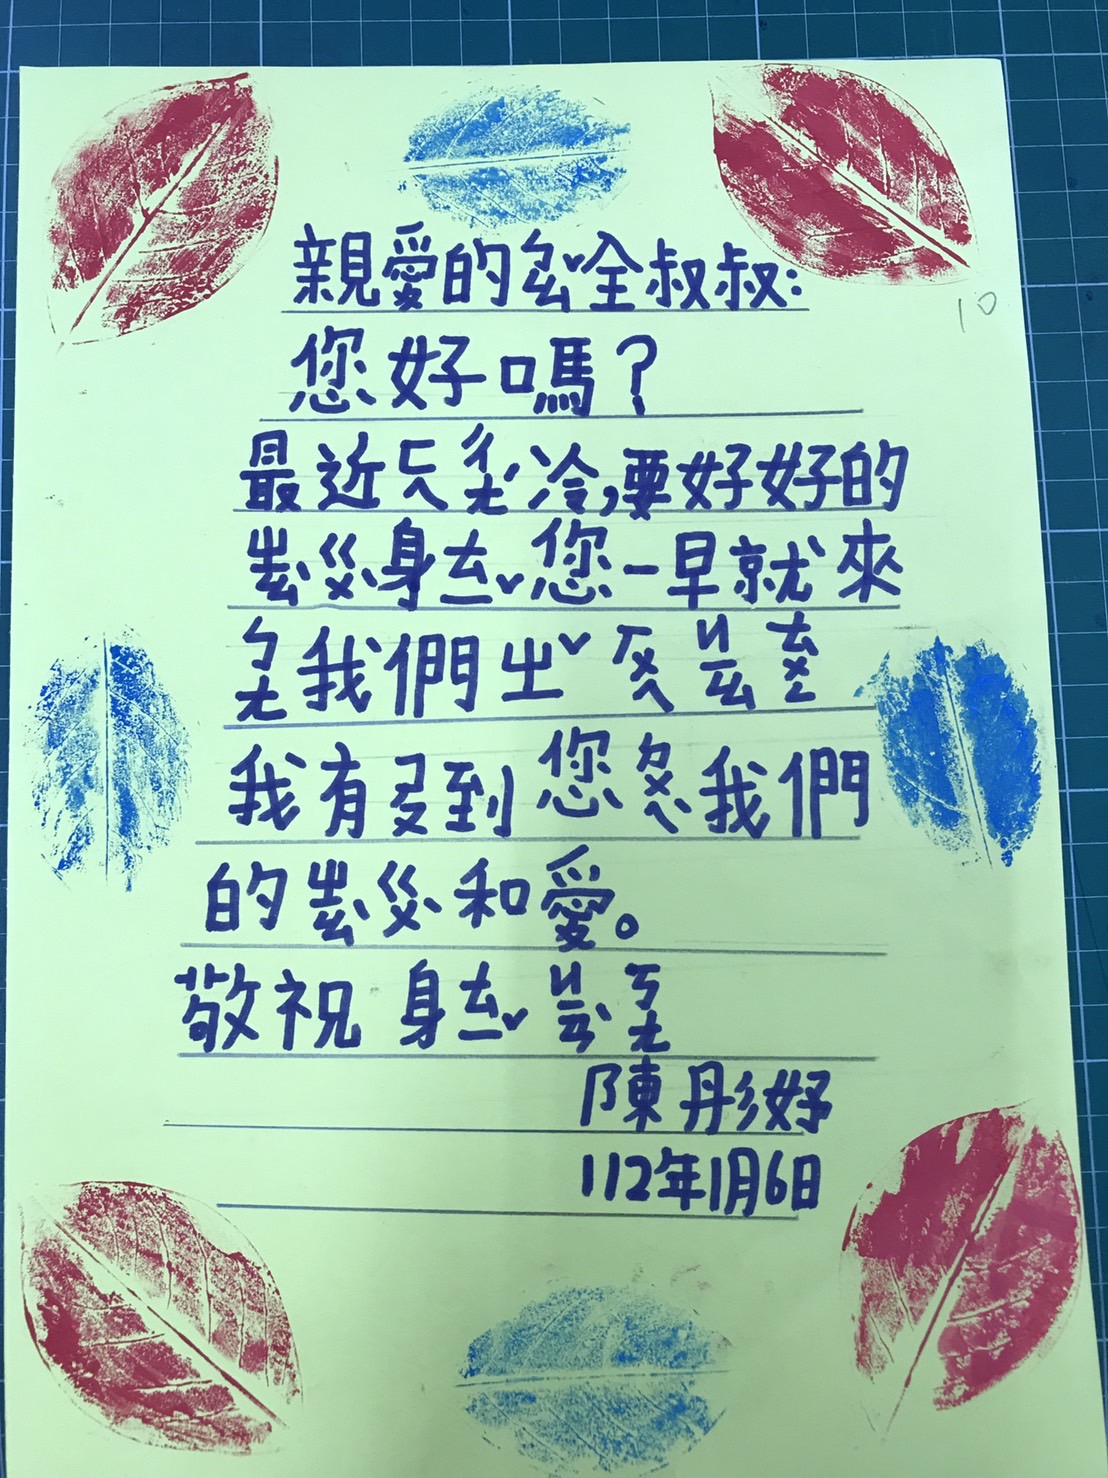 親愛的ㄅㄠˇ全叔叔:
10
您好嗎?
最近ㄈㄟㄔㄤˊ冷,要好好的
ㄓㄠˋㄍㄨˋ身ㄊㄧˇ您一早就來
ㄅㄤ我們ㄓˇㄏㄨㄟㄐㄧㄠㄊㄨㄥ
我有ㄕㄡ到您ㄉㄨㄟˋ我們
的ㄓㄠˋㄍㄨˋ和愛。
敬祝 身ㄊㄧˇㄐㄧㄢˋㄎㄤ
陳彤妤
112年1月6日